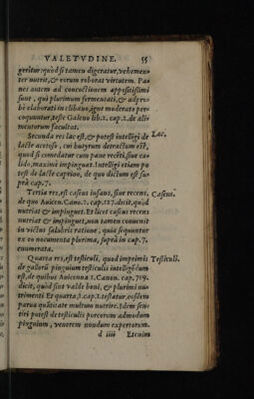 VALETVDINE. 55
geritur: quòd si tamen digeratur, vehemen-
ter nutrit, & verum roborat virtutem. Pa
nes autem ad concoctionem appositissimi
sunt, qui plurimum fermentati, & adpro-
bè elaborati in clibano, ignt moderato per-
coquuntur, teste Galeno lib. 1. cap. 2. de ali
mentorum facultat.
Secunda res lac est, & potest intelligi de Lac.
lacte acetoso, cui butyrum detractum est,
quod si comedatur cum pane recēti, siue ca
lido, maximè impinguat. Intelligi etiam po
test de lacte caprino, de quo dictum est su-
prà cap. 7.
Tertia res, est caseus infans, siue recens. Caseus.
de quo Auicen. Cano. 2. cap. 127. dicit, quòd
nutriat & impinguet. Et licet caseus recens
nutriat & impinguet, non tamen conuenit
in victus salubris ratione, quia sequuntur
ex eo nocumenta plurima, suprà in cap. 7.
enumerata.
Quarta res, est testiculi, quod imprimis Testiculi.
de gallorū pinguium testiculis intelligēdum
est, de quibus Auicenna 2. Canon. cap. 719.
dicit, quòd sint valde boni, & plurimi nu-
trimenti Et quarta, 1. cap. 2. testatur, eosdem
parua quātitate multum nutrire. Idem sen-
tiri potest de testiculis porcorum admodum
pinguium, venerem nondum expertorum.
d iiij Etenim